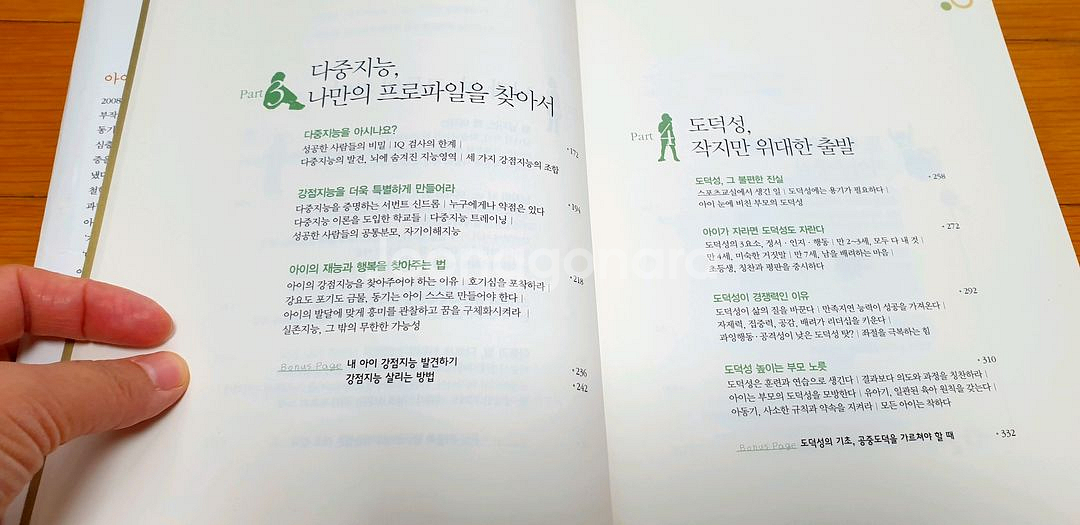 아이
2008
부작
동기
심층
중을
냈다
철학
과
아
Part 3
다중지능,
나만의 프로파일을 찾아서
다중지능을 아시나요?
성공한 사람들의 비밀 | IQ 검사의 한계 |
다중지능의 발견, 뇌에 숨겨진 지능영역 | 세 가지 강점지능의 조합
•172
강점지능을 더욱 특별하게 만들어라
다중지능을 증명하는 서번트 신드롬 | 누구에게나 약점은 있다
다중지능 이론을 도입한 학교들 | 다중지능 트레이닝 |
성공한 사람들의 공통분모, 자기이해지능
•194
아이의 재능과 행복을 찾아주는 법
아이의 강점지능을 찾아주어야 하는 이유 | 호기심을 포착하라 |
강요도 포기도 금물, 동기는 아이 스스로 만들어야 한다 |
아이의 발달에 맞게 흥미를 관찰하고 꿈을 구체화시켜라 |
실존지능, 그 밖의 무한한 가능성
•218
Bonus Page 내 아이 강점지능 발견하기
•236
강점지능 살리는 방법
•242
Part 4
도덕성,
작지만 위대한 출발
도덕성, 그 불편한 진실
•258
스포츠교실에서 생긴 일 | 도덕성에는 용기가 필요하다 |
아이 눈에 비친 부모의 도덕성
아이가 자라면 도덕성도 자란다
•272
도덕성의 3요소, 정서 · 인지 · 행동 | 만 2~3세, 모두 다 내 것 |
만 4세, 미숙한 거짓말 | 만 7세, 남을 배려하는 마음 |
초등생, 칭찬과 평판을 중시하다
도덕성이 경쟁력인 이유
•292
도덕성이 삶의 질을 바꾼다 | 만족지연 능력이 성공을 가져온다 |
자제력, 집중력, 공감, 배려가 리더십을 키운다 |
과잉행동 · 공격성이 낮은 도덕성 탓? | 좌절을 극복하는 힘
도덕성 높이는 부모 노릇
•310
도덕성은 훈련과 연습으로 생긴다 | 결과보다 의도와 과정을 칭찬하라 |
아이는 부모의 도덕성을 모방한다 | 유아기, 일관된 육아 원칙을 갖는다 |
아동기, 사소한 규칙과 약속을 지켜라 | 모든 아이는 착하다
Bonus Page 도덕성의 기초, 공중도덕을 가르쳐야 할 때
•332